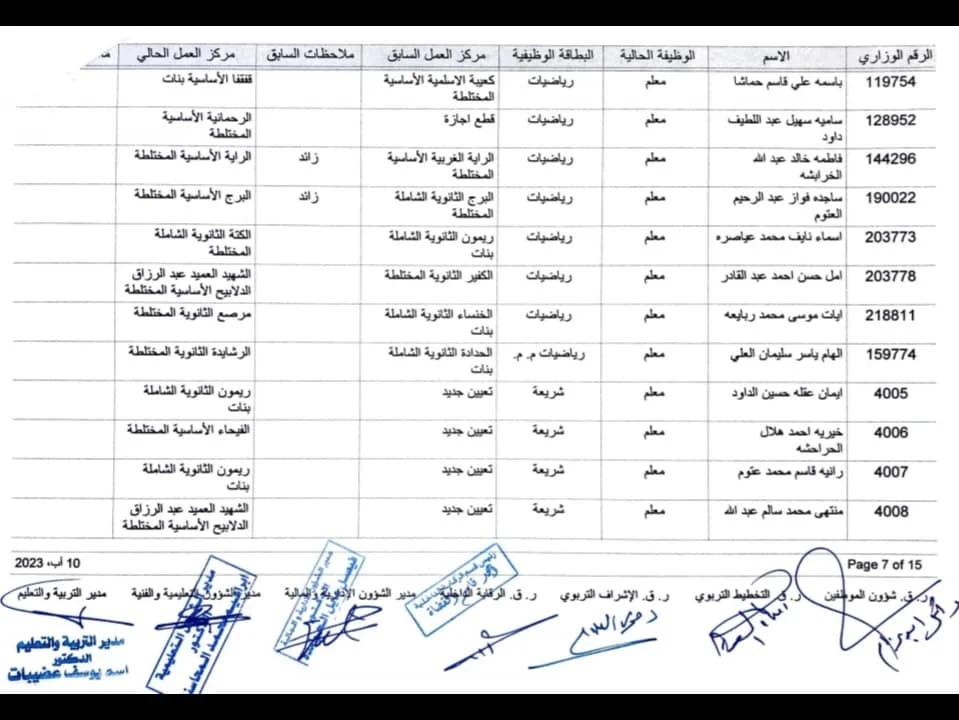 الرقم الوزاري	الاسم	الوظيفة الحالية	البطاقة الوظيفية	مركز العمل السابق	ملاحظات السابق	مركز العمل الحالي
119754	باسمه علي قاسم حماشا	معلم	رياضيات	كعيبة الاسلمية الأساسية	قفقفا الأساسية بنات
المختلطة
128952	ساميه سهيل عبد اللطيف	معلم	رياضيات	قطع اجازة	الرحمانية الأساسية
داود	المختلطة
144296	فاطمه خالد عبد الله	معلم	رياضيات	الراية الغربية الأساسية	زائد	الراية الأساسية المختلطة
الخرابشه	المختلطة
190022	ساجده فواز عبد الرحيم	معلم	رياضيات	البرج الثانوية الشاملة	زائد	البرج الأساسية المختلطة
العتوم	المختلطة
203773	اسماء نايف محمد عياصره	معلم	رياضيات	ريمون الثانوية الشاملة	الكتة الثانوية الشاملة
بنات	المختلطة
203778	امل حسن احمد عبد القادر	معلم	رياضيات	الكفير الثانوية المختلطة	الشهيد العميد عبد الرزاق
الدلابيح الأساسية المختلطة
218811	ايات موسى محمد ربايعه	معلم	رياضيات	الخنساء الثانوية الشاملة	مرصع الثانوية المختلطة
بنات
159774	الهام ياسر سليمان العلي	معلم	رياضيات م. م.	الحدادة الثانوية الشاملة	الرشايدة الثانوية المختلطة
بنات
4005	ايمان عقله حسين الداود	معلم	شريعة	تعيين جديد	ريمون الثانوية الشاملة
بنات
4006	خيريه احمد هلال	معلم	شريعة	تعيين جديد	الفيحاء الأساسية المختلطة
الحراحشه
4007	رانيه قاسم محمد عتوم	معلم	شريعة	تعيين جديد	ريمون الثانوية الشاملة
بنات
4008	منتهى محمد سالم عبد الله	معلم	شريعة	تعيين جديد	الشهيد العميد عبد الرزاق
الدلابيح الأساسية المختلطة
Page 7 of 15	10 آب، 2023
ر. ق. شؤون الموظفين	ر. ق. التخطيط التربوي	ر. ق. الإشراف التربوي	ر. ق. الرقابة الداخلية	مدير الشؤون الإدارية والمالية	مدير الشؤون التعليمية والفنية	مدير التربية والتعليم
مدير التربية والتعليم
الدكتور
اسم يوسف عضيبات